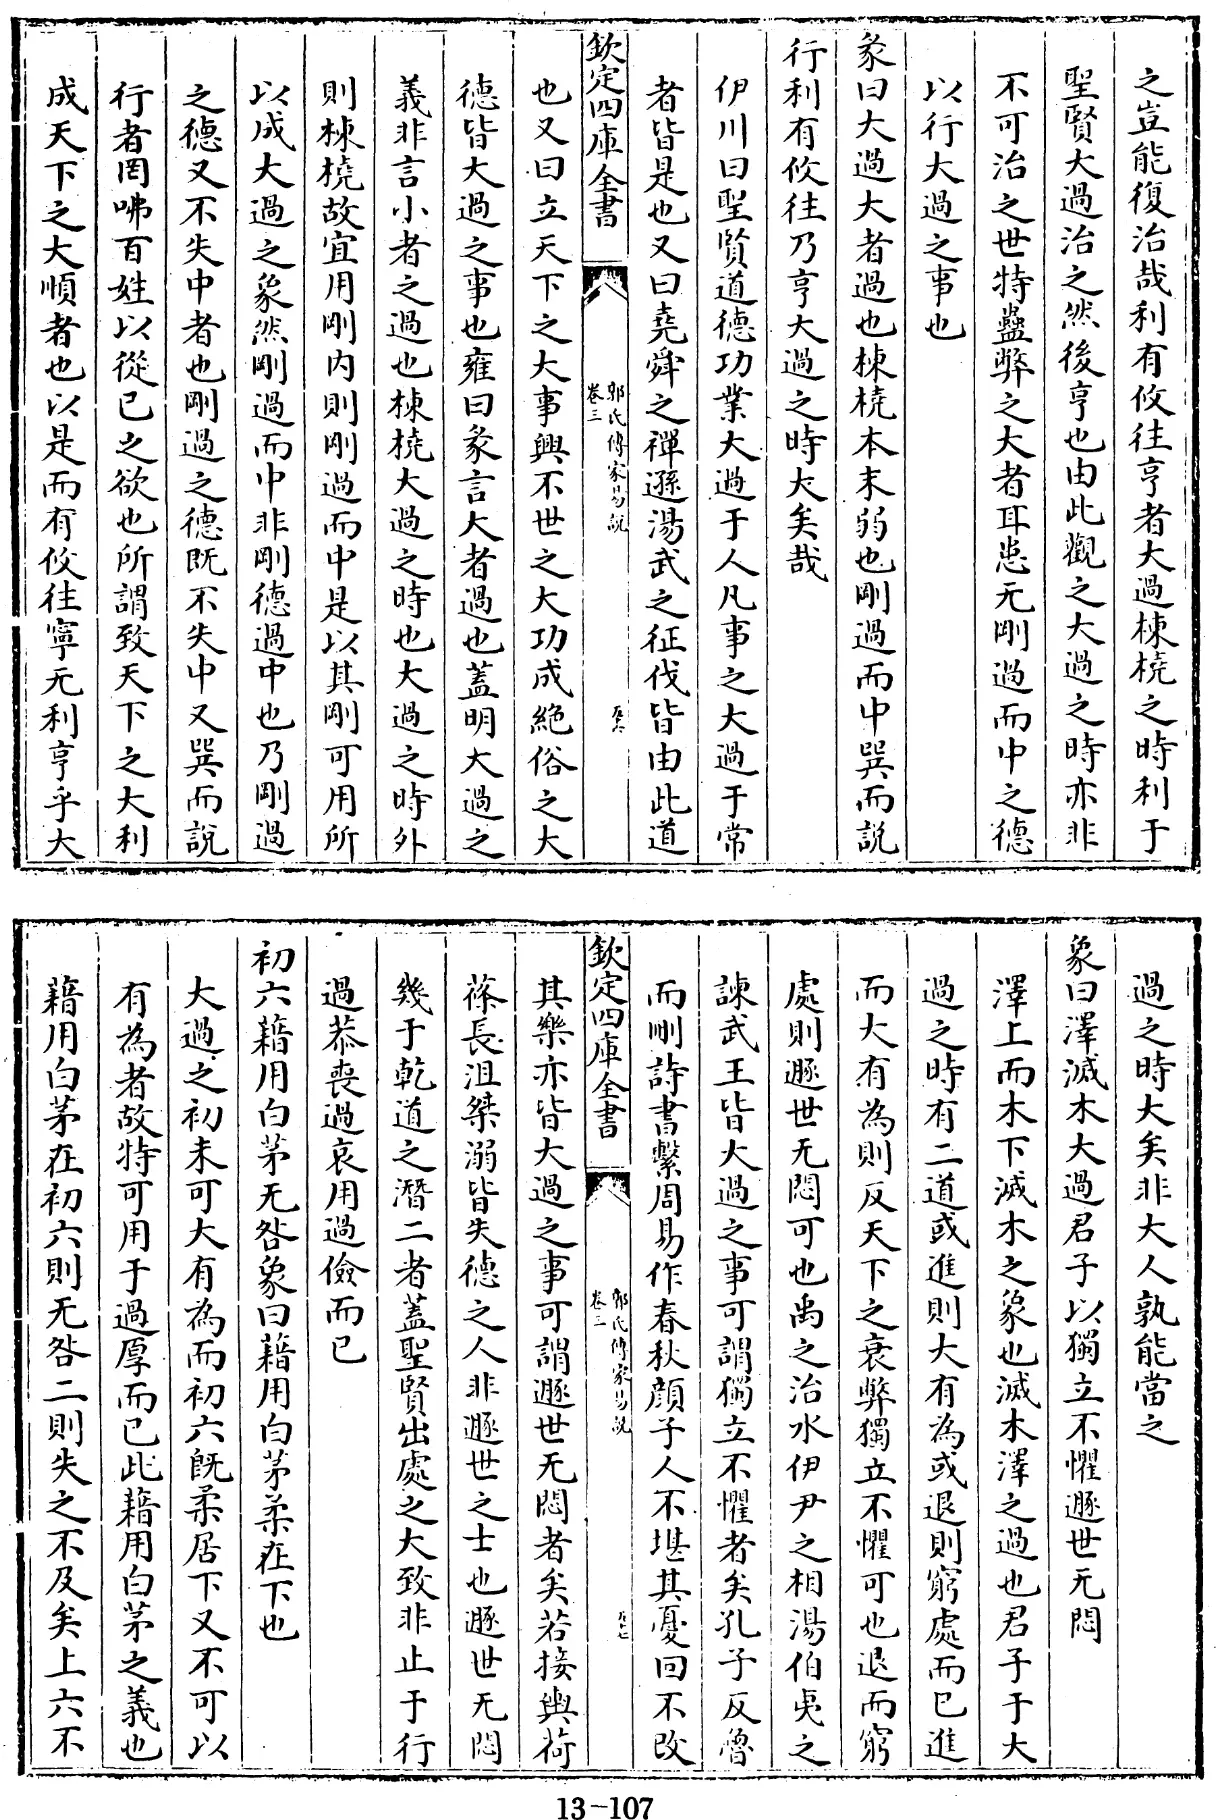 之豈能復治哉利有攸往亨者大過棟橈之時利于
聖賢大過治之然後亨也由此觀之大過之時亦非
不可治之世特蠱弊之大者耳患无剛過而中之德
以行大過之事也
彖曰大過大者過也棟橈本末弱也剛過而中巽而說
行利有攸往乃亨大過之時大矣哉
伊川曰聖賢道德功業大過于人凡事之大過于常
者皆是也又曰堯舜之禪遜湯武之征伐皆由此道
欽定四庫全書
郭氏傳家易說
卷三
也又曰立天下之大事興不世之大功成絶俗之大
德皆大過之事也雍曰彖言大者過也蓋明大過之
義非言小者之過也棟橈大過之時也大過之時外
則棟橈故宜用剛内則剛過而中是以其剛可用所
以成大過之象然剛過而中非剛德過中也乃剛過
之德又不失中者也剛過之德既不失中又巽而說
行者罔咈百姓以從已之欲也所謂致天下之大利
成天下之大順者也以是而有攸往寧无利亨乎大
過之時大矣非大人孰能當之
象曰澤滅木大過君子以獨立不懼遯世无悶
澤上而木下滅木之象也滅木澤之過也君子于大
過之時有二道或進則大有為或退則窮處而已進
而大有為則反天下之衰弊獨立不懼可也退而窮
處則遯世无悶可也禹之治水伊尹之相湯伯夷之
諫武王皆大過之事可謂獨立不懼者矣孔子反魯
而刪詩書繫周易作春秋顔子人不堪其憂回不改
欽定四庫全書
郭氏傳家易說
卷三
其樂亦皆大過之事可謂遯世无悶者矣若接輿荷
蓧長沮桀溺皆失德之人非遯世之士也遯世无悶
幾于乾道之潛二者蓋聖賢出處之大致非止于行
過恭喪過哀用過儉而已
初六藉用白茅无咎象曰藉用白茅柔在下也
大過之初未可大有為而初六既柔居下又不可以
有為者故特可用于過厚而已此藉用白茅之義也
藉用白茅在初六則无咎二則失之不及矣上六不
13-107